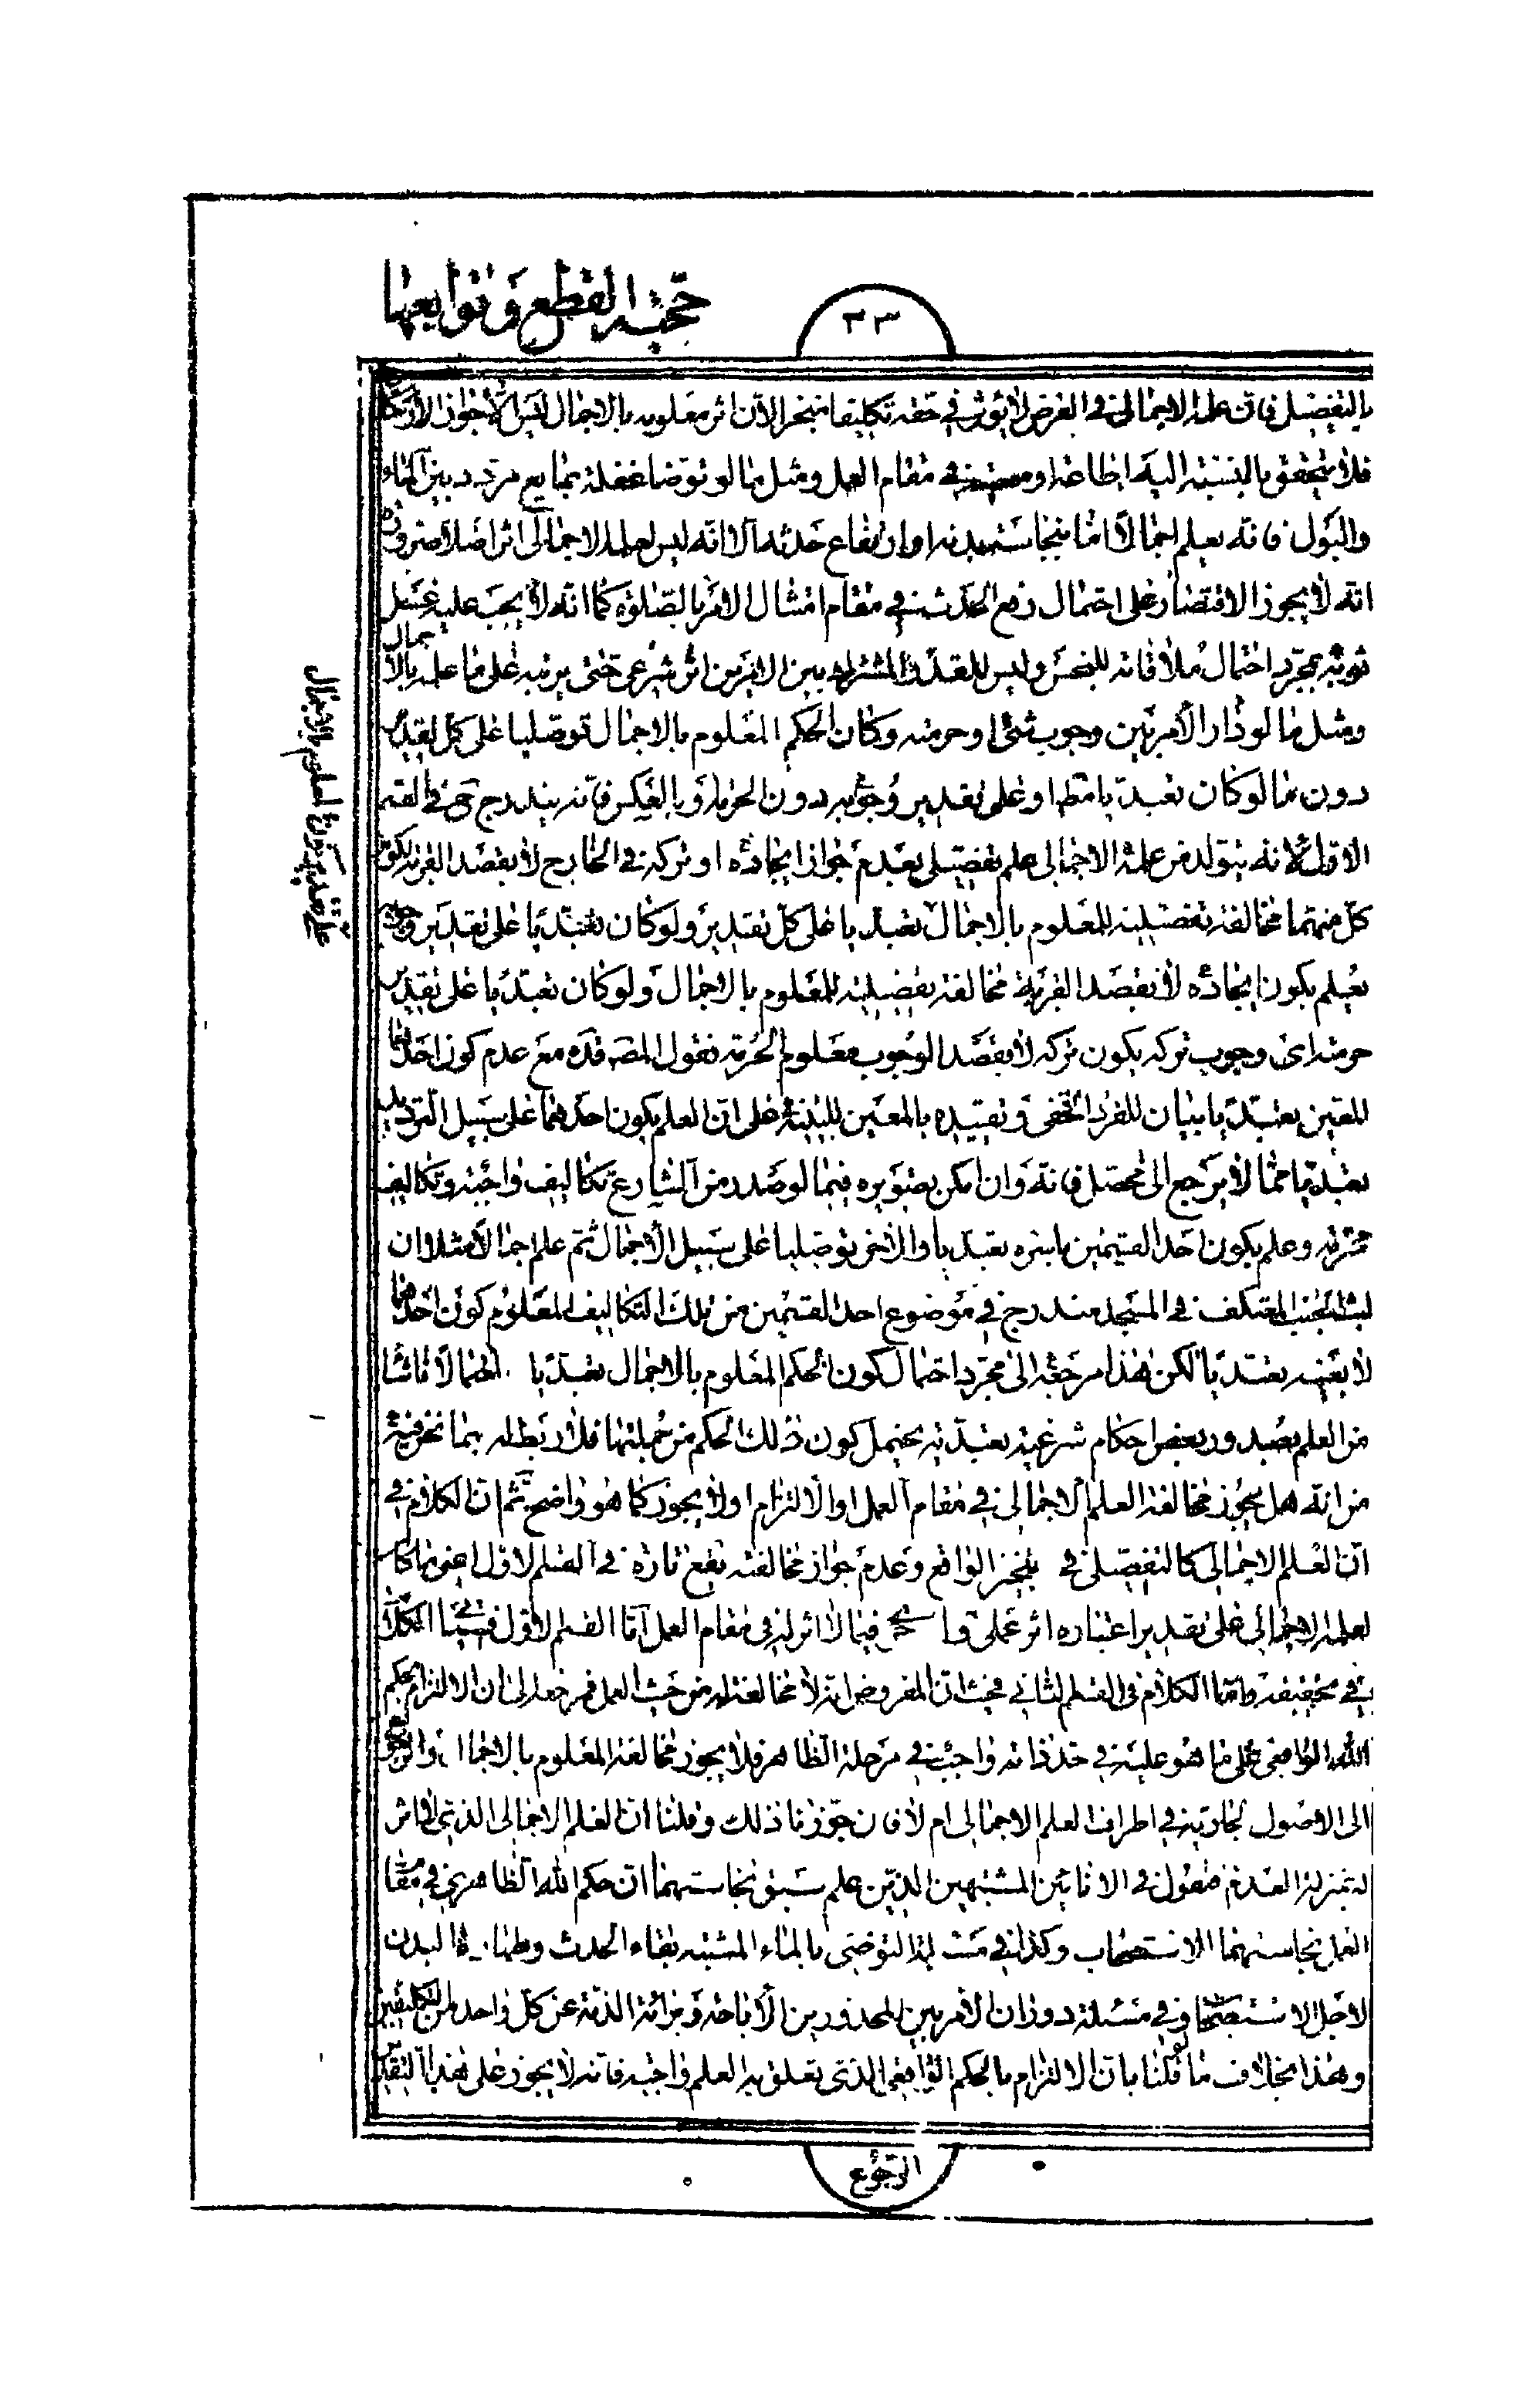 حجية القطع وتوابعها
٣٣
بالتفصيل فان علمه الاجمالى فى الفرض لا يؤثر فى حقه تكليفا منجزا لان اثر معلومه بالاجمال ليس الا جواز الارتكاب
فلا يتحقق بالنسبة اليه اطاعة او معصية فى مقام العمل ومثل ما لو توضا غفلة بمايع مردد بين الماء
والبول فانه يعلم اجمالا اما بنجاسة بدنه او ان بقاع حدثه الا انه ليس لعلمه الاجمالى اثر اصلا ضرورة
انه لا يجوز الاقتصار على احتمال رفع الحدث فى مقام امتثال الامر بالصلوة كما انه لا يجب عليه غسل
ثوبه بمجرد احتمال ملاقاته للنجس وليس للقدر المشترك بين الامرين اثر شرعى حتى يرتبه على ما علمه بالاجمال
ومثل ما لو دار الامر بين وجوب شئ او حرمته وكان الحكم المعلوم بالاجمال توصليا على كل تقدير
دون ما لو كان تعبديا مطلقا او على تقدير وجوبه دون الحرمة وبالعكس فانه يندرج ح فى القسم
الاول لانه يتولد من علمه الاجمالى علم تفصيلى بعدم جواز ايجاده او تركه فى الخارج لا بقصد القربة لكون
كل منهما مخالفة تفصيلية للمعلوم بالاجمال تعبديا على كل تقدير ولو كان تعبديا على تقدير وجوبه
يعلم بكون ايجاده لا بقصد القربة مخالفة تفصيلية للمعلوم بالاجمال ولو كان تعبديا على تقدير
حرمته اى وجوب تركه يكون تركه لا بقصد الوجوب معلوم الحرمة فقول المصه قده مع عدم كون احدهما
المعين تعبديا بيان للفرد الخفى وتقييده بالمعين للتنبيه على ان العلم بكون احدهما على سبيل الترديد
تعبديا مما لا يرجع الى محصل فانه وان امكن تصويره فيما لو صدر من الشارع تكاليف واجبة وتكاليف
محرمة وعلم بكون احد القسمين باسره تعبديا والاخر توصليا على سبيل الاجمال ثم علم اجمالا مثلا ان
لبث الجنب المعتكف فى المسجد مندرج فى موضوع احد القسمين من تلك التكاليف المعلوم كون احدهما
لا بعينه تعبديا لكن هذا مرجعه الى مجرد احتمال كون الحكم المعلوم بالاجمال تعبديا احتمالا ناشئا
من العلم بصدور بعض احكام شرعية تعبدية يحتمل كون ذلك الحكم من جملتها فلا ربط له بما نحن فيه
من انه هل يجوز مخالفة العلم الاجمالى فى مقام العمل او الالتزام او لا يجوز كما هو واضح ثم ان الكلام فى
ان العلم الاجمالى كالتفصيلى فى تنجيز الواقع وعدم جواز مخالفته يقع تارة فى القسم الاول اعنى ما كان
لعلمه الاجمالى على تقدير اعتباره اثر عملى واخرى فيما لا اثر له فى مقام العمل اما القسم الاول فسيأتى الكلام
فى تحقيقه واما الكلام فى القسم الثانى فحيث ان المفروض انه لا مخالفة له من حيث العمل فمرجعه الى ان الالتزام بحكم
الله الواقعى على ما هو عليه فى حد ذاته واجب فى مرحلة الظاهر فلا يجوز مخالفة المعلوم بالاجمال والرجوع
الى الاصول الجارية فى اطراف العلم الاجمالى ام لا فان جوزنا ذلك وقلنا ان العلم الاجمالى الذى لا اثر
له بمنزلة العدم فنقول فى الانائين المشتبهين الذين علم سبق نجاستهما ان حكم الله الظاهرى فى مقام
العمل نجاستهما للاستصحاب وكذا فى مسئلة التوضى بالماء المشتبه بقاء الحدث وطهارة البدن
لاجل الاستصحاب وفى مسئلة دوران الامر بين المحذورين الاباحة وبرائة الذمة عن كل واحد من التكليفين
وهذا بخلاف ما لو قلنا بان الالتزام بالحكم الواقعى الذى تعلق به العلم واجب فانه لا يجوز على هذا التقدير
الرجوع
على تقدير كون المعلوم بالاجمال